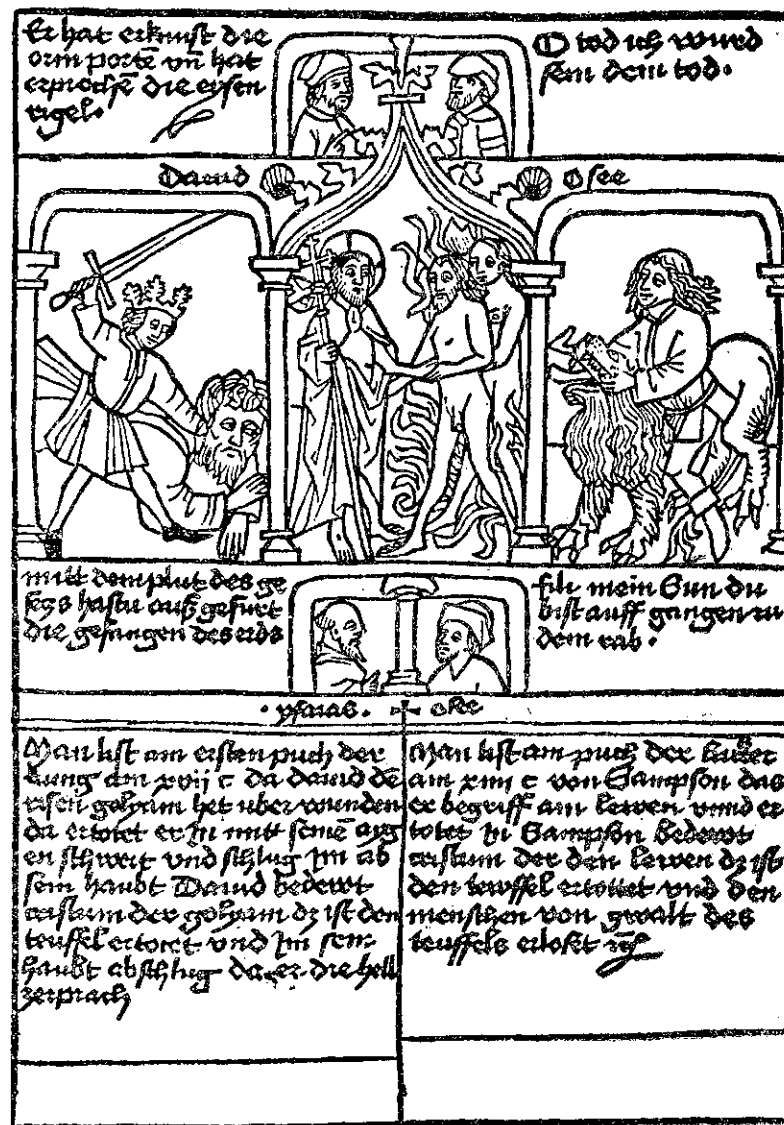 Er hat erknust die
orin porte vn̄ hat
erprochē die eysen
rigel.
O tod ich wurd
sein dein tod.
Dauid
Osee
mitt dem plut des ge
secz hastu auß gefurt
die gefangen des
fili mein Sun du
bist auff gangen zu
dem rab.
ysaias.
Man list am ersten puch der
kung am xvij c da dauid dē
risen golyam het uber wunden
da ertotet er in mitt seinē ayg
en schwert vnd schlug im ab
sein haubt Dauid bedewt
cristum der golyam dz ist den
teuffel ertotet vnd im sein
haubt abschlug da er die hell
zerprach
Man list am puch der
am xiiij c von Sampson das
er begriff ain lewen vnnd er
totet in Sampson bedewt
cristum der den lewen dz ist
den tewffel ertottet vnd den
menschen von gwalt des
teuffels erloset